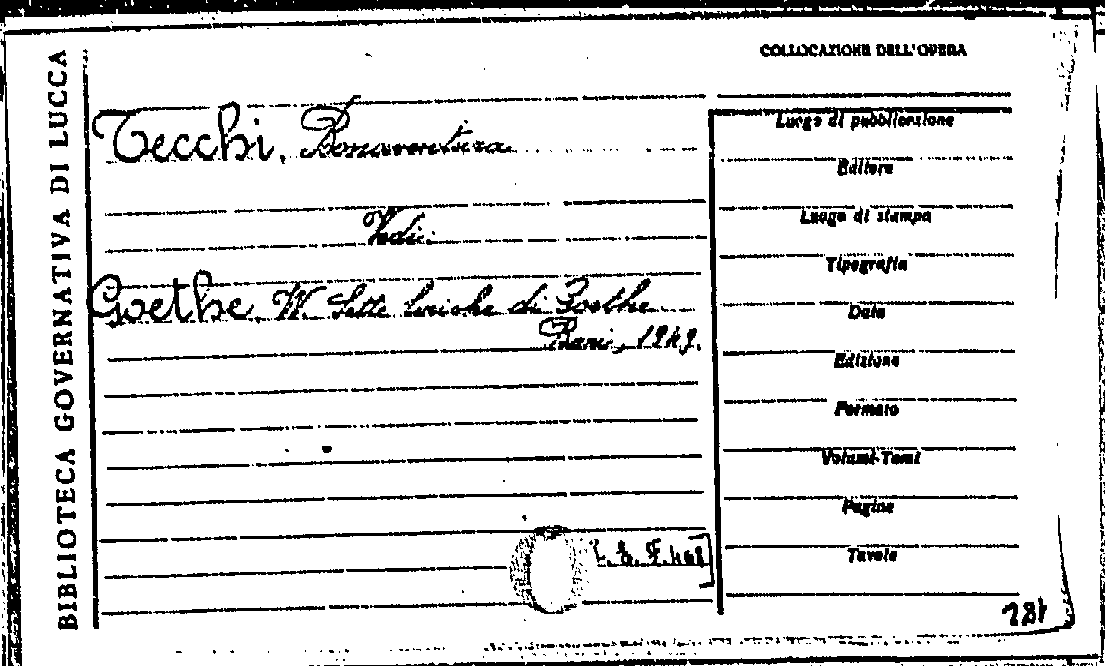 BIBLIOTECA GOVERNATIVA DI LUCCA
COLLOCAZIONE DELL'OPERA
Tecchi, Bonaventura
Vedi:
Goethe, W. Sette liriche di Goethe
Bari, 1949.
Luogo di pubblicazione
Editore
Luogo di stampa
Tipografia
Data
Edizione
Formato
Volumi-Tomi
Pagine
Tavole